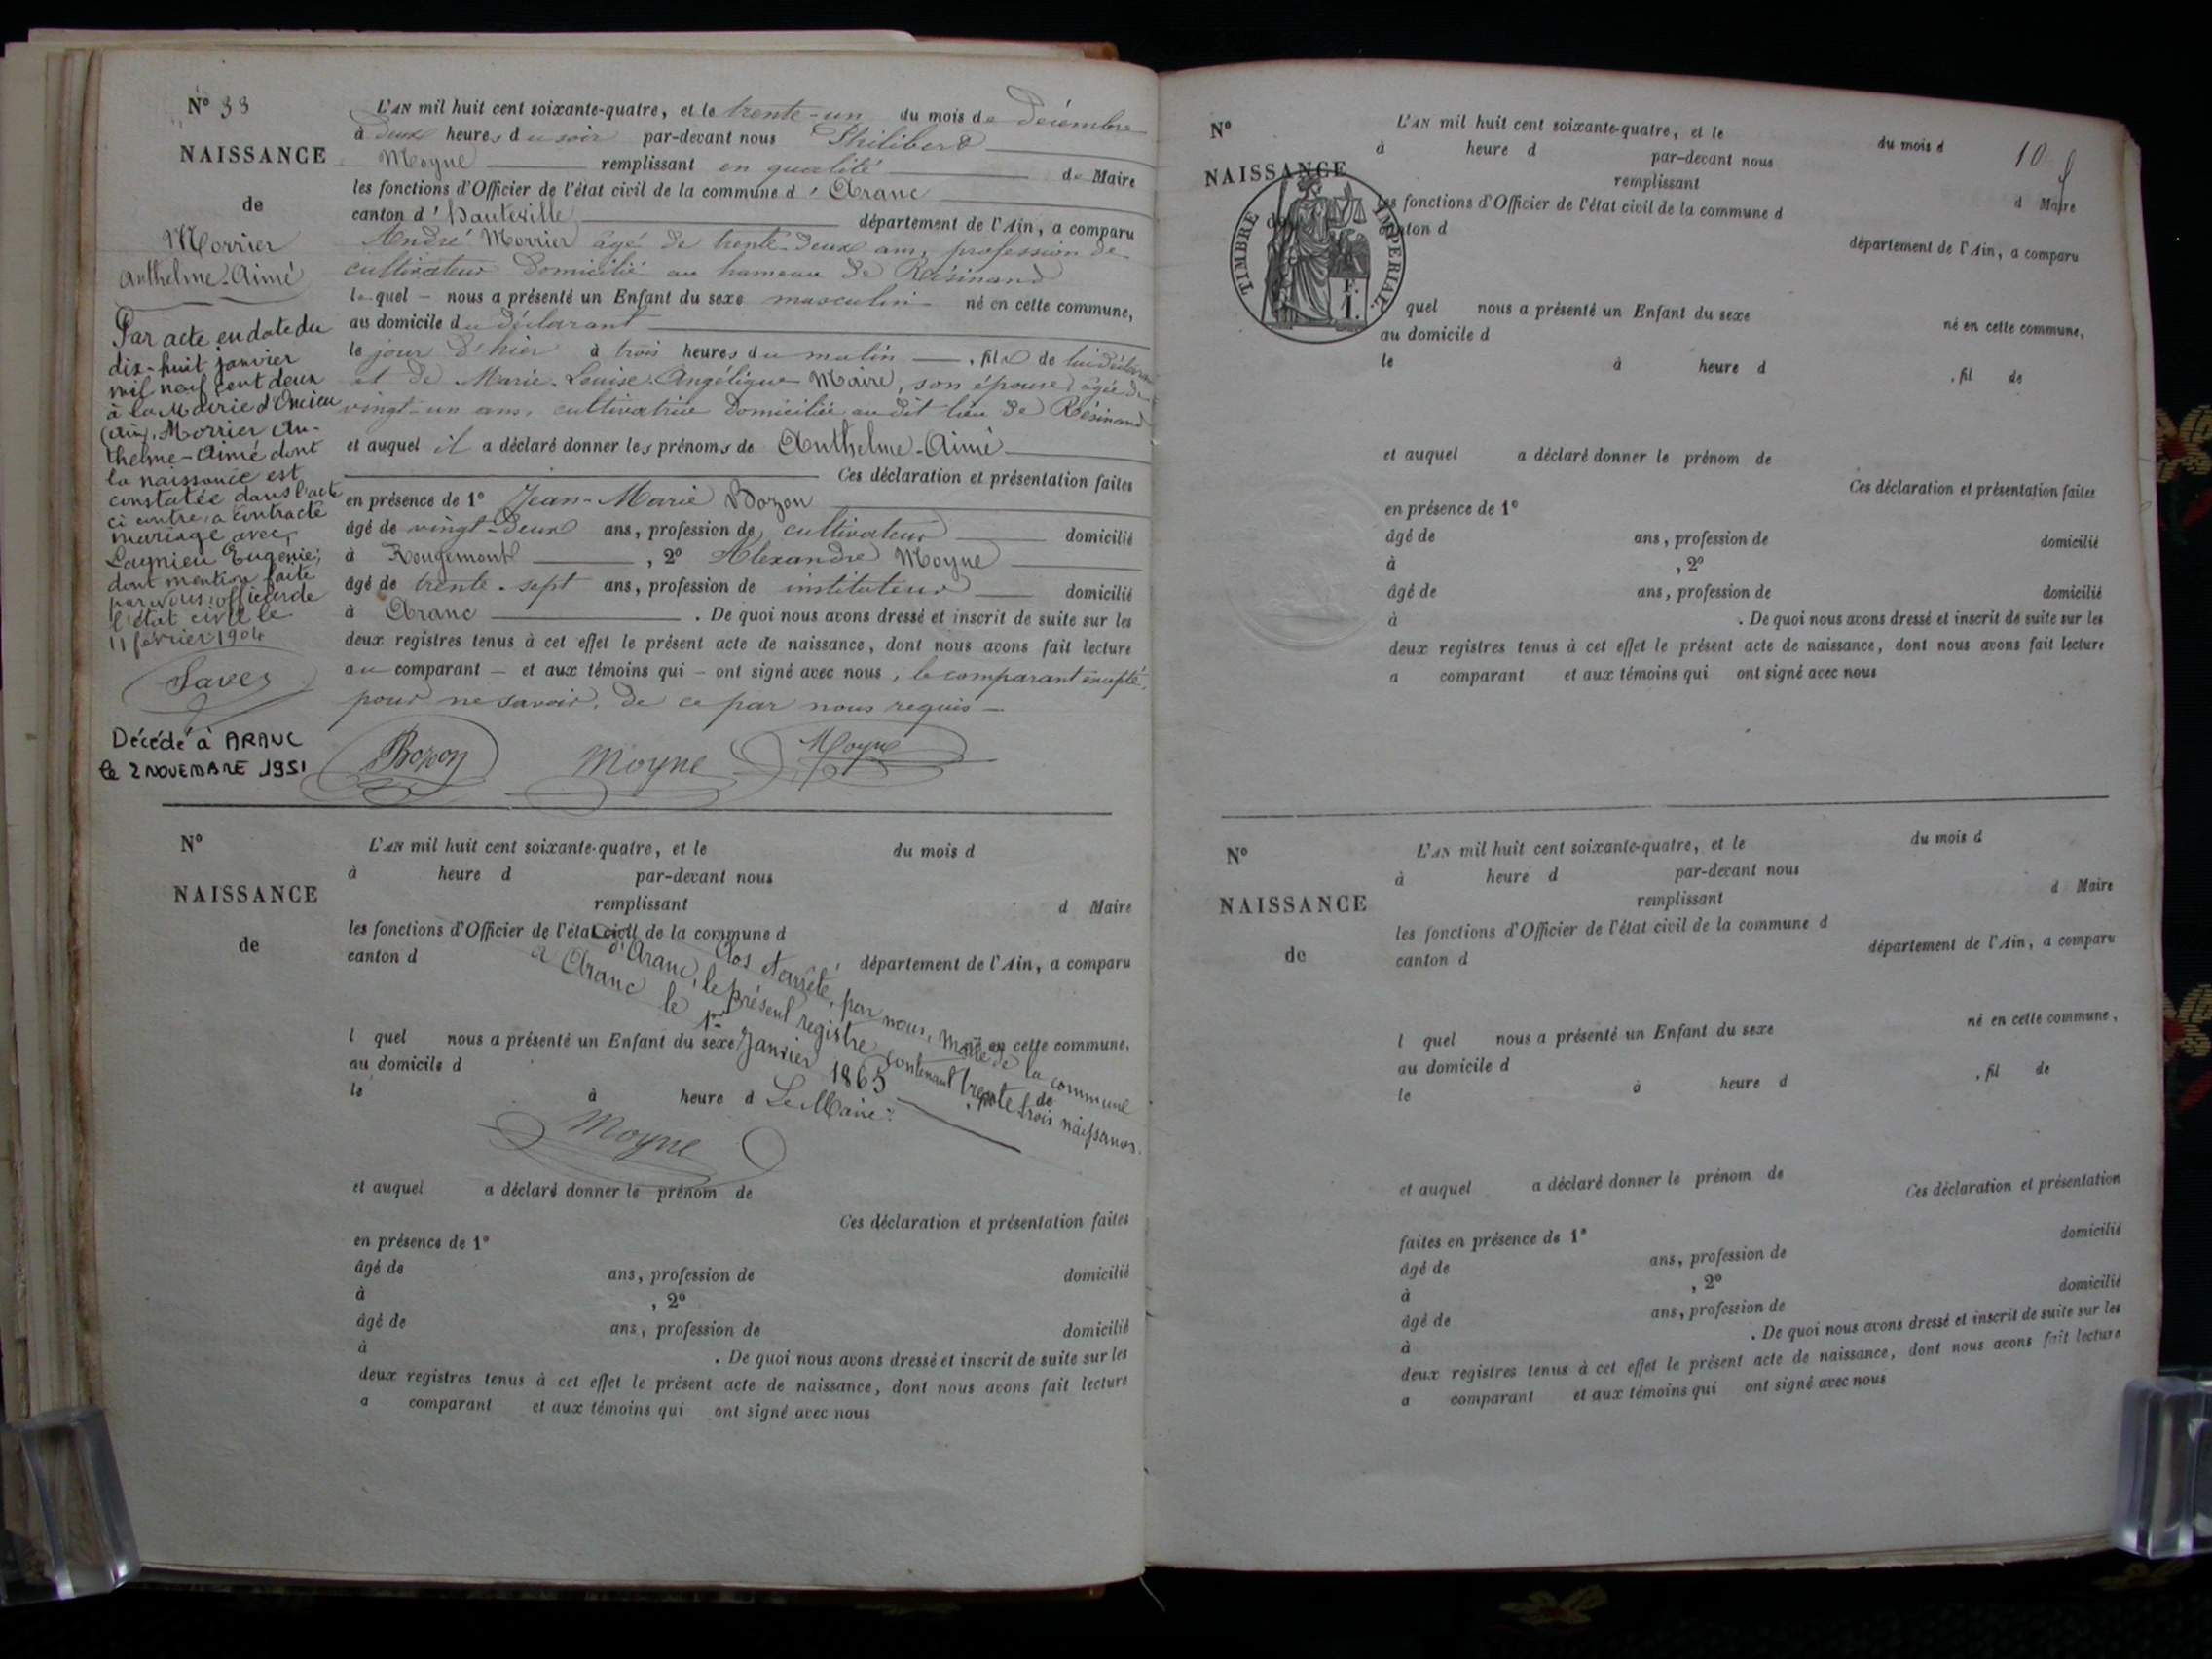 N° 33
NAISSANCE
de
Morrier
Anthelme-Aimé
Par acte en date du
dix-huit janvier
mil neuf cent deux
à la Mairie d'Oncieu
(Ain), Morrier An-
thelme-Aimé dont
la naissance est
constatée dans l'acte
ci contre, a contracté
mariage avec
Laynieu Eugénie;
dont mention faite
par nous officier de
l'état civil le
11 février 1904
Savey
Décédé à ARANC
le 2 NOVEMBRE 1951
L'AN mil huit cent soixante-quatre, et le trente-un du mois de Décembre
à deux heures du soir par-devant nous Philibert
Moyne remplissant en qualité de Maire
les fonctions d'Officier de l'état civil de la commune d'Aranc
canton d'Hauteville département de l'Ain, a comparu
André Morrier âgé de trente-deux ans, profession de
cultivateur domicilié au hameau de Résinand
lequel nous a présenté un Enfant du sexe masculin né en cette commune,
au domicile du déclarant
le jour d'hier à trois heures du matin, fils de lui déclarant
et de Marie-Louise-Angélique Maire, son épouse, âgée de
vingt-un ans, cultivatrice domiciliée au dit lieu de Résinand
et auquel il a déclaré donner les prénoms de Anthelme-Aimé
Ces déclaration et présentation faites
en présence de 1° Jean-Marie Bozon
âgé de vingt-deux ans, profession de cultivateur domicilié
à Rougemont, 2° Alexandre Moyne
âgé de trente-sept ans, profession de instituteur domicilié
à Aranc. De quoi nous avons dressé et inscrit de suite sur les
deux registres tenus à cet effet le présent acte de naissance, dont nous avons fait lecture
au comparant et aux témoins qui ont signé avec nous, le comparant excepté,
pour ne savoir, de ce par nous requis
Bozon Moyne Moyne
N°
NAISSANCE
de
L'AN mil huit cent soixante-quatre, et le du mois d
à heure d par-devant nous
remplissant d Maire
les fonctions d'Officier de l'état civil de la commune d
canton d département de l'Ain, a comparu
Clos et arrêté, par nous, Maire de la commune
d'Aranc, le présent registre contenant trente trois naissances.
à Aranc le 1er Janvier 1865
Le Maire:
Moyne
l quel nous a présenté un Enfant du sexe né en cette commune,
au domicile d
le à heure d , fil de
et auquel a déclaré donner le prénom de
Ces déclaration et présentation faites
en présence de 1°
âgé de ans, profession de domicilié
à , 2°
âgé de ans, profession de domicilié
à . De quoi nous avons dressé et inscrit de suite sur les
deux registres tenus à cet effet le présent acte de naissance, dont nous avons fait lecture
a comparant et aux témoins qui ont signé avec nous
10
N°
NAISSANCE
de
TIMBRE IMPÉRIAL
F.
1.
L'AN mil huit cent soixante-quatre, et le du mois d
à heure d par-devant nous
remplissant d Maire
les fonctions d'Officier de l'état civil de la commune d
canton d département de l'Ain, a comparu
quel nous a présenté un Enfant du sexe né en cette commune,
au domicile d
le à heure d , fil de
et auquel a déclaré donner le prénom de
Ces déclaration et présentation faites
en présence de 1°
âgé de ans, profession de domicilié
à , 2°
âgé de ans, profession de domicilié
à . De quoi nous avons dressé et inscrit de suite sur les
deux registres tenus à cet effet le présent acte de naissance, dont nous avons fait lecture
a comparant et aux témoins qui ont signé avec nous
N°
NAISSANCE
de
L'AN mil huit cent soixante-quatre, et le du mois d
à heure d par-devant nous
remplissant d Maire
les fonctions d'Officier de l'état civil de la commune d
canton d département de l'Ain, a comparu
l quel nous a présenté un Enfant du sexe né en cette commune,
au domicile d
le à heure d , fil de
et auquel a déclaré donner le prénom de
Ces déclaration et présentation
faites en présence de 1° domicilié
âgé de ans, profession de
à , 2° domicilié
âgé de ans, profession de
à . De quoi nous avons dressé et inscrit de suite sur les
deux registres tenus à cet effet le présent acte de naissance, dont nous avons fait lecture
a comparant et aux témoins qui ont signé avec nous